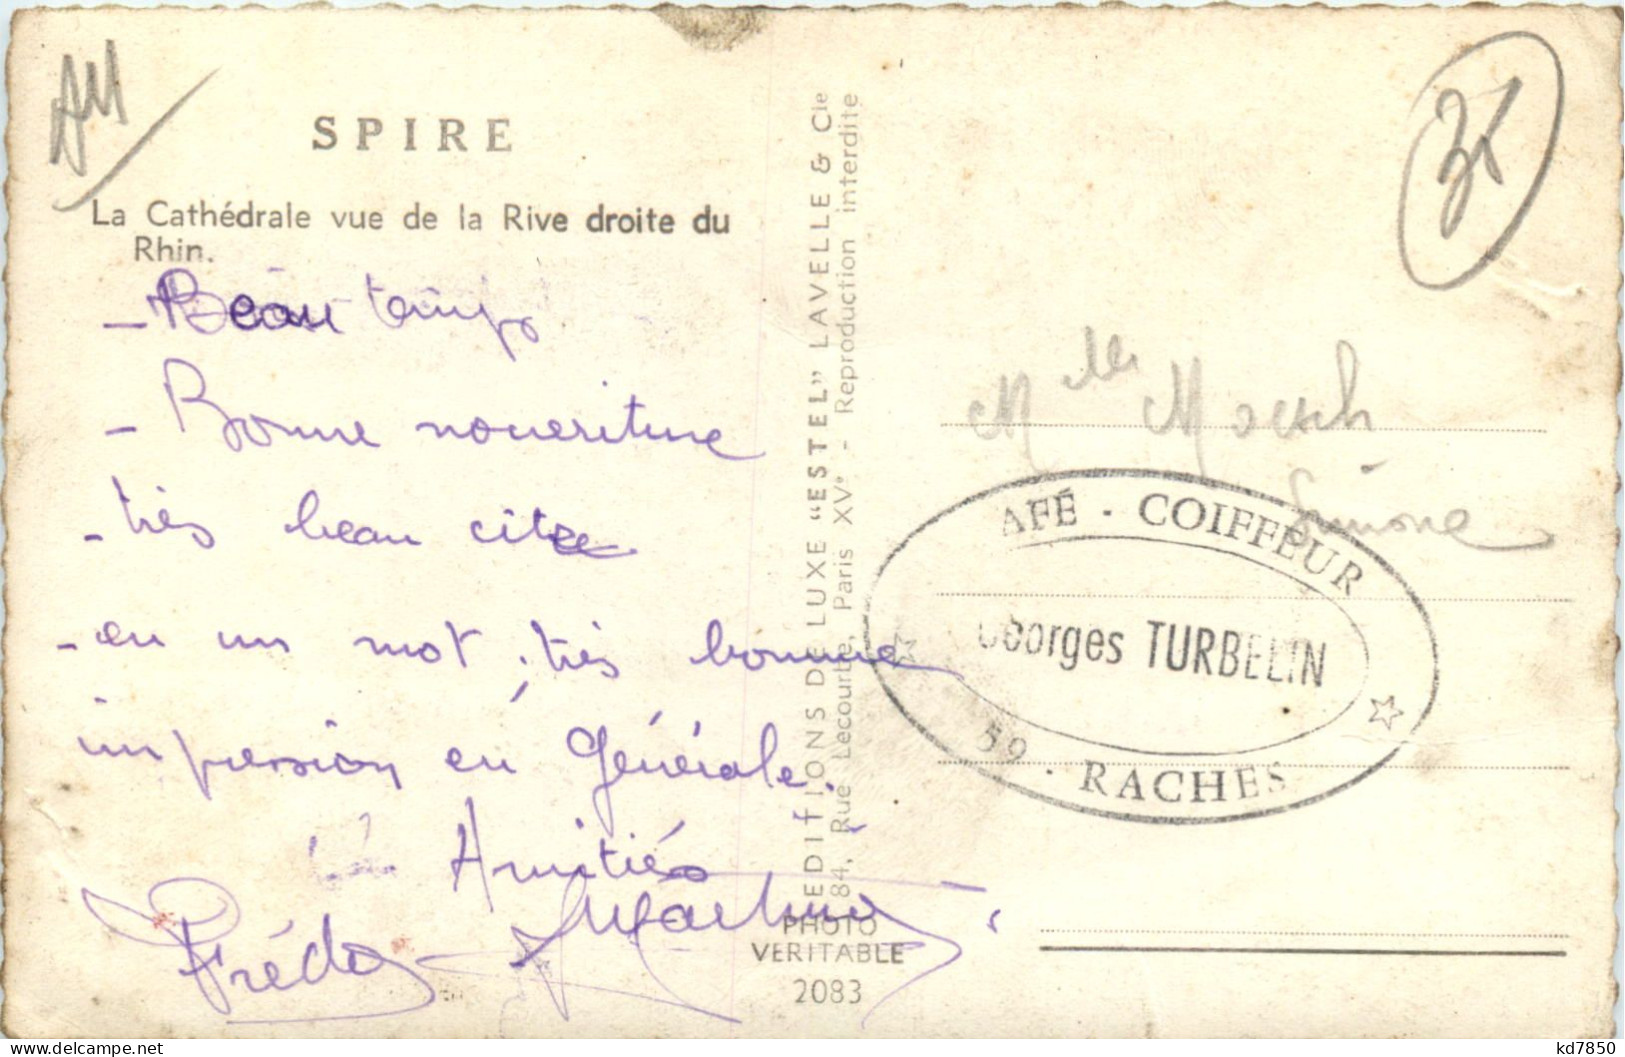 AM
SPIRE
La Cathédrale vue de la Rive droite du
Rhin.
- Beau temps
- Bonne noueriture
- très beau cite
- en un mot, très bonne
impression en Générale.
Amitiés
Frédo Martine
EDITIONS DE LUXE "ESTEL" LAVELLE & Cie
84, Rue Lecourbe, Paris XVe - Reproduction interdite
PHOTO
VERITABLE
2083
Mlle
Simone
AFÉ - COIFFEUR
Georges TURBELIN
59 - RACHES
kd7850